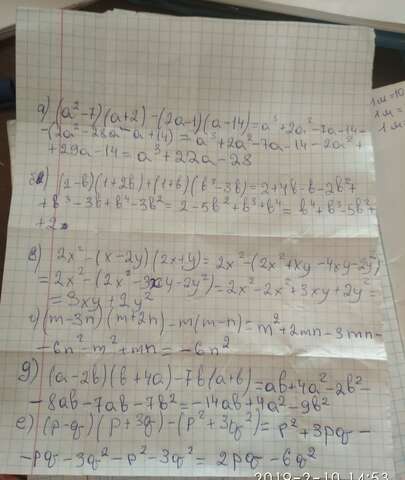 а) (a²-7)(a+2)-(2a-1)(a-14)=a³+2a²-7a-14-
-(2a²-28a-a+14)=a³+2a²-7a-14-2a²+
+29a-14=a³+22a-28
(2-b)(1+2b)+(1+b)(b³-3b)=2+4b-b-2b²+
+b³-3b+b⁴-3b²=2-5b²+b³+b⁴=b⁴+b³-5b²+
+2
в) 2x²-(x-2y)(2x+y)=2x²-(2x²+xy-4xy-2y²)
=2x²-(2x²-3xy-2y²)=2x²-2x²+3xy+2y²=
=3xy+2y²
г) (m-3n)(m+2n)-m(m-n)=m²+2mn-3mn-
-6n²-m²+mn=-6n²
д) (a-2b)(b+4a)-7b(a+b)=ab+4a²-2b²-
-8ab-7ab-7b²=-14ab+4a²-9b²
е) (p-q)(p+3q)-(p²+3q²)=p²+3pq-
-pq-3q²-p²-3q²=2pq-6q²
2019-2-10 14:53